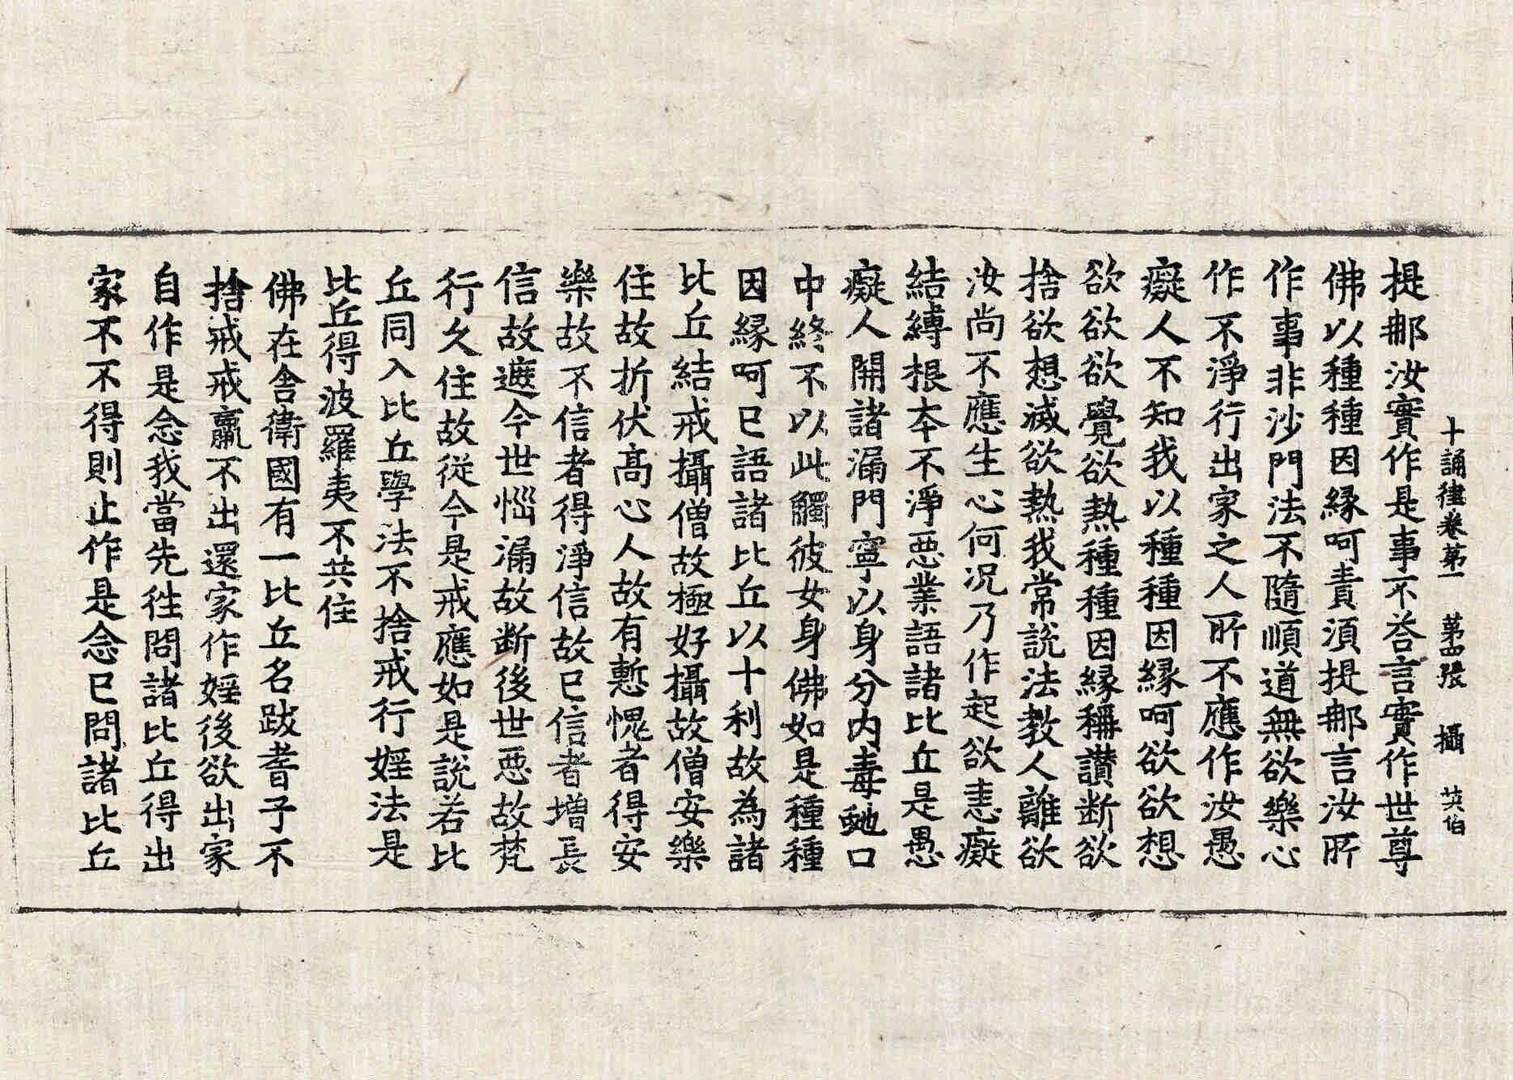 十誦律卷第一　第四張　攝　英伯
提郍汝實作是事不荅言實作世尊
佛以種種因縁呵責湏提郍言汝所
作事非沙門法不隨順道無欲樂心
作不淨行出家之人所不應作汝愚
癡人不知我以種種因縁呵欲欲想
欲欲欲覺欲熱種種因縁稱讃断欲
捨欲想滅欲熱我常說法教人離欲
汝尚不應生心何況乃作起欲恚癡
結縛根夲不淨惡業語諸比丘是愚
癡人開諸漏門寧以身分内毒虵口
中終不以此觸彼女身佛如是種種
因縁呵已語諸比丘以十利故為諸
比丘結戒攝僧故極好攝故僧安樂
住故折伏髙心人故有慙愧者得安
樂故不信者得淨信故已信者增長
信故遮今世惱漏故断後世惡故梵
行久住故從今是戒應如是說若比
丘同入比丘學法不捨戒行婬法是
比丘得波羅夷不共住
佛在舍衛國有一比丘名跋耆子不
捨戒戒羸不出還家作婬後欲出家
自作是念我當先徃問諸比丘得出
家不不得則止作是念已問諸比丘